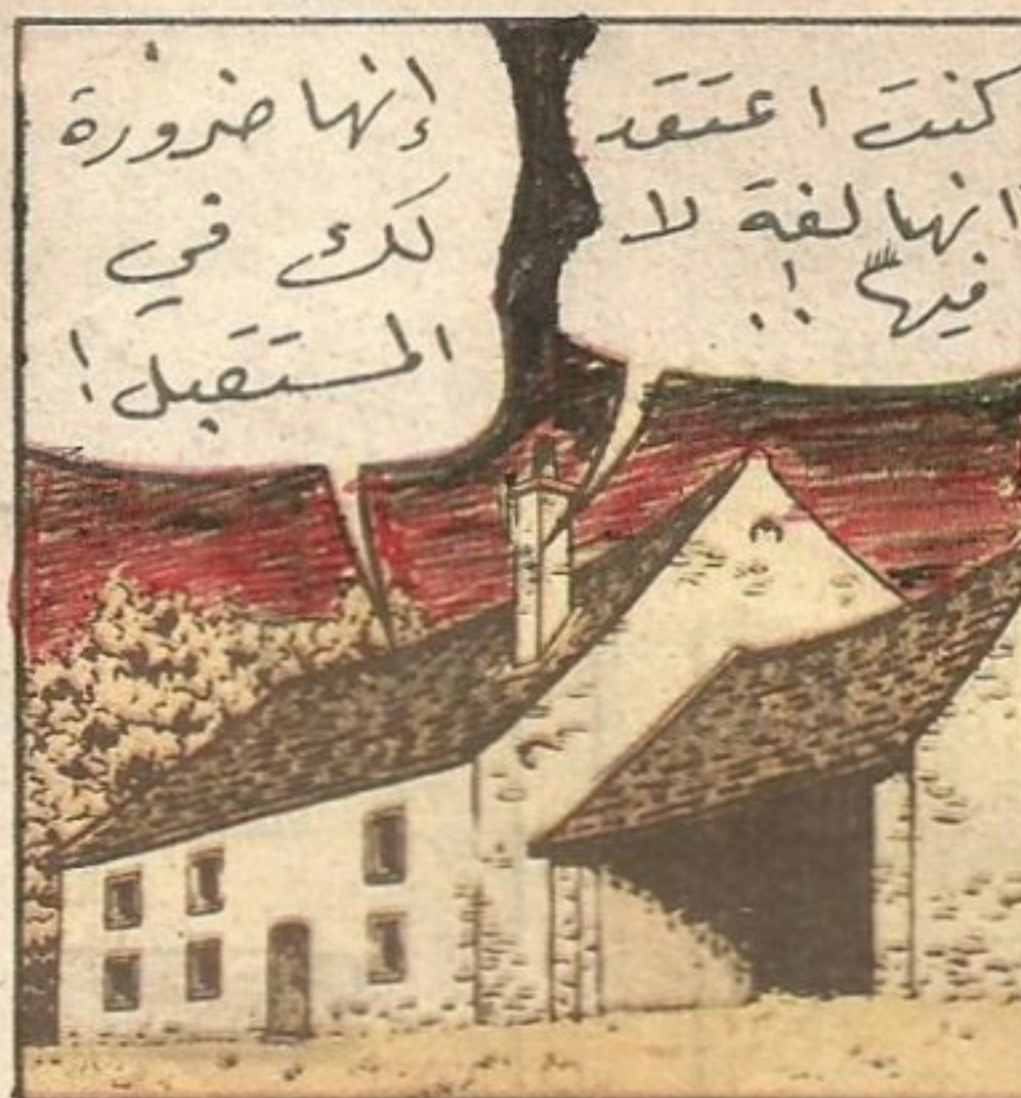 كنت اعتقد
انها لغة لا
فيها !!
إنها ضرورة
لك في
المستقبل !